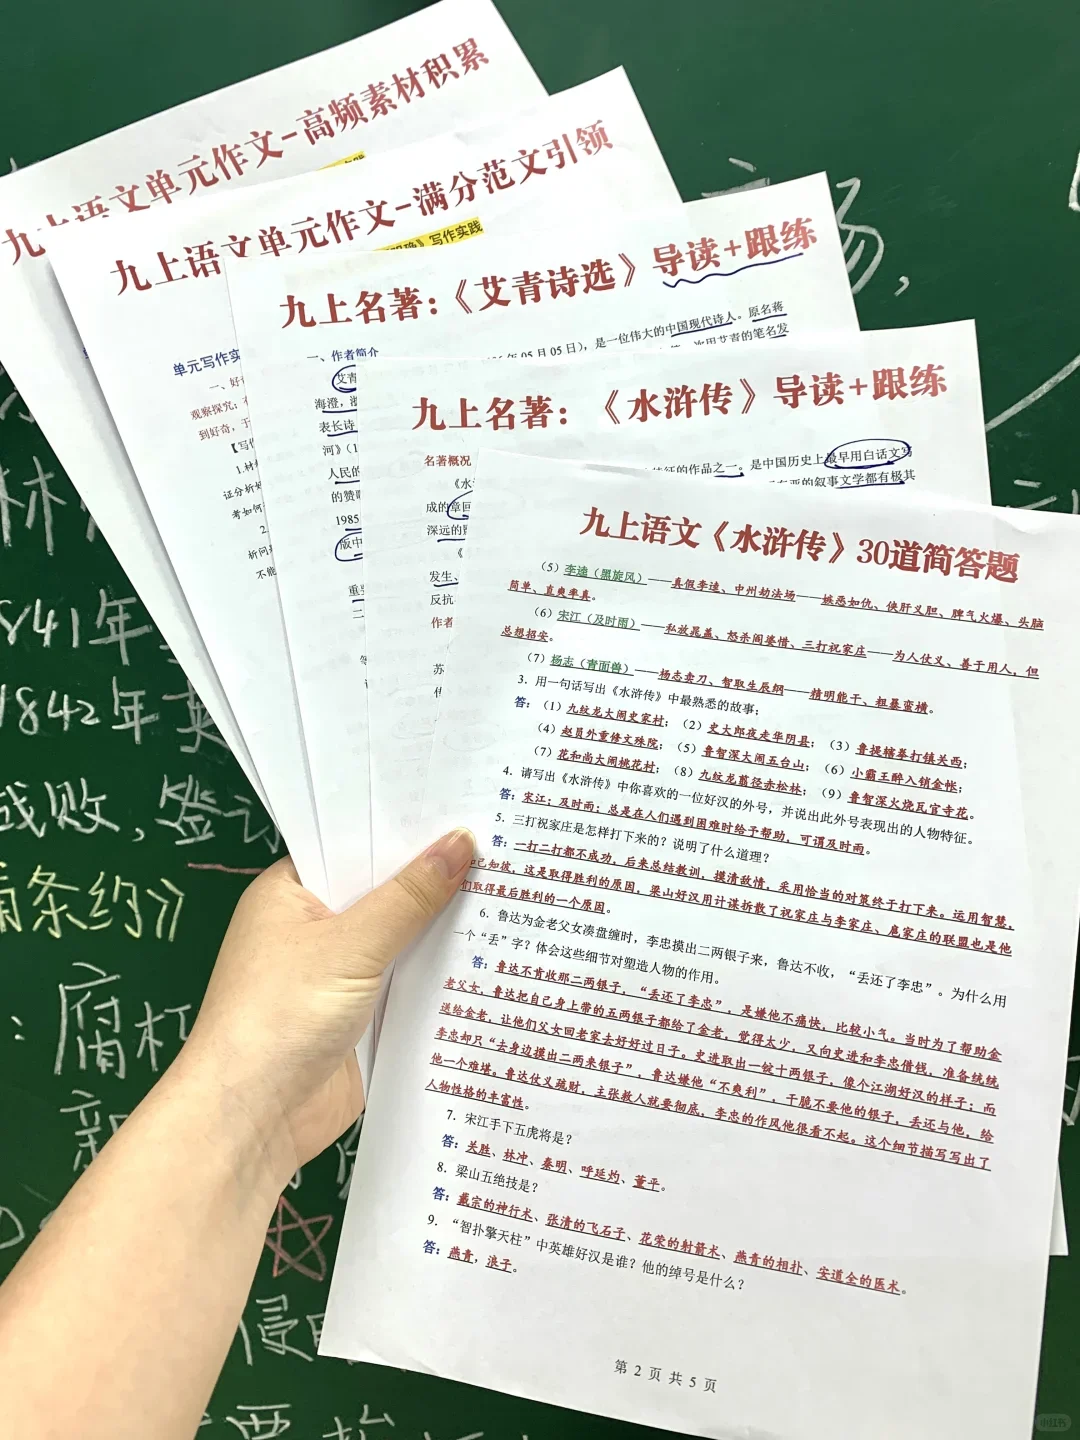 九上语文单元作文-高频素材积累
九上语文单元作文-满分范文引领
写作实践
单元写作实
一、好
观察探究;
到好奇,于
【写作
1.材
证分析
考如何
2.
析问
不能
九上名著:《艾青诗选》导读+跟练
一、作者简介
年05月05日),是一位伟大的中国现代诗人。原名蒋
次用艾青的笔名发
艾青
海澄,浙
表长诗
河》(1
人民的
的赞
1985
版中
重要
二
九上名著:《水浒传》导读+跟练
名著概况
特征的作品之一。是中国历史上最早用白话文写
的叙事文学都有极其
《水
成的章回
深远的影
《
发生、
反抗
作者
苏
九上语文《水浒传》30道简答题
(5)李逵(黑旋风)——真假李逵、中州劫法场——嫉恶如仇、侠肝义胆、脾气火爆、头脑
简单、直爽率真。
(6)宋江(及时雨)——私放晁盖、怒杀阎婆惜、三打祝家庄——为人仗义、善于用人,但
总想招安。
(7)杨志(青面兽)——杨志卖刀、智取生辰纲——精明能干、粗暴蛮横。
3. 用一句话写出《水浒传》中最熟悉的故事;
答:(1)九纹龙大闹史家村;(2)史大郎夜走华阴县;(3)鲁提辖拳打镇关西;
(4)赵员外重修文殊院;(5)鲁智深大闹五台山;(6)小霸王醉入销金帐;
(7)花和尚大闹桃花村;(8)九纹龙翦径赤松林;(9)鲁智深火烧瓦官寺花。
4. 请写出《水浒传》中你喜欢的一位好汉的外号,并说出此外号表现出的人物特征。
答:宋江;及时雨;总是在人们遇到困难时给予帮助,可谓及时雨。
5. 三打祝家庄是怎样打下来的?说明了什么道理?
答:一打二打都不成功,后来总结教训,摸清敌情,采用恰当的对策终于打下来。运用智慧,
知己知彼,这是取得胜利的原因,梁山好汉用计谋拆散了祝家庄与李家庄、扈家庄的联盟也是他
们取得最后胜利的一个原因。
6. 鲁达为金老父女凑盘缠时,李忠摸出二两银子来,鲁达不收,“丢还了李忠”。为什么用
一个“丢”字?体会这些细节对塑造人物的作用。
答:鲁达不肯收那二两银子,“丢还了李忠”,是嫌他不痛快,比较小气。当时为了帮助金
老父女,鲁达把自己身上带的五两银子都给了金老,觉得太少,又向史进和李忠借钱,准备统统
送给金老,让他们父女回老家去好好过日子。史进取出一锭十两银子,像个江湖好汉的样子;而
李忠却只“去身边摸出二两来银子”,鲁达嫌他“不爽利”,干脆不要他的银子,丢还与他,给
他一个难堪。鲁达仗义疏财,主张救人就要彻底,李忠的作风他很看不起。这个细节描写写出了
人物性格的丰富性。
7. 宋江手下五虎将是?
答:关胜、林冲、秦明、呼延灼、董平。
8. 梁山五绝技是?
答:戴宗的神行术、张清的飞石子、花荣的射箭术、燕青的相扑、安道全的医术。
9. “智扑擎天柱”中英雄好汉是谁?他的绰号是什么?
答:燕青,浪子。
第 2 页 共 5 页
场,
林
841年
1842年英
战败,签
条约》
:腐朽
新
侵
小红书